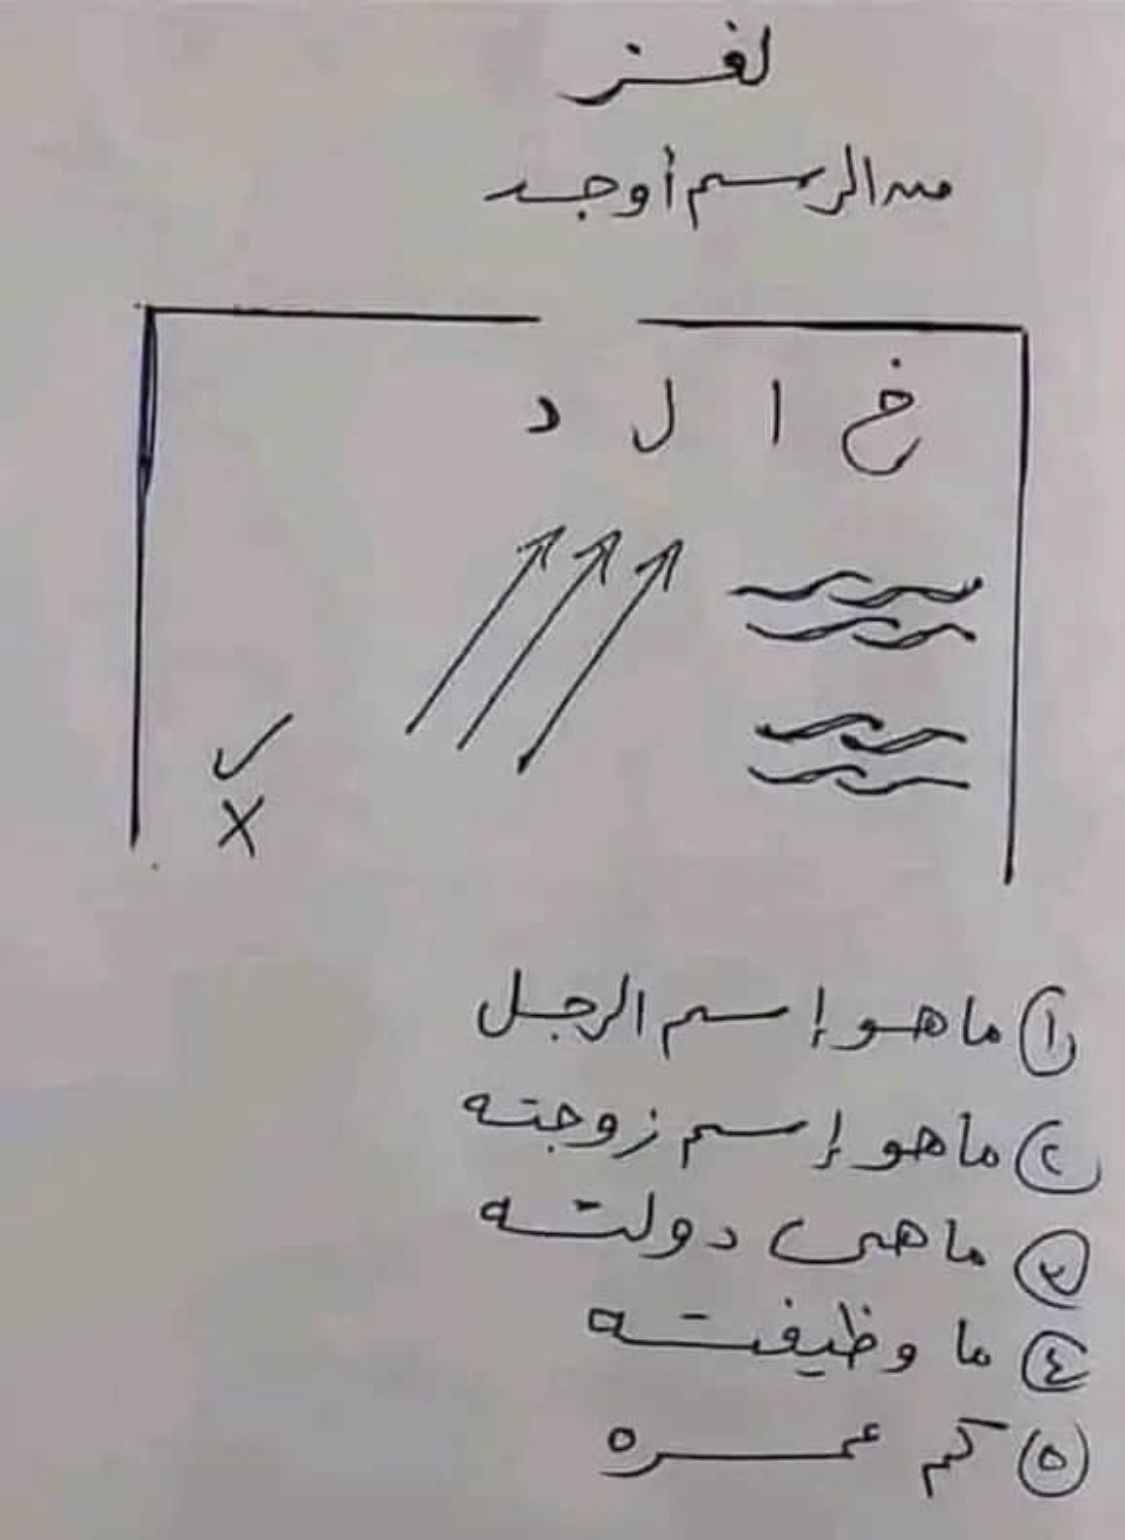 لغز
من الرسم أوجد
خ ا ل د
✓
X
١ ما هو إسم الرجل
٢ ما هو إسم زوجته
٣ ما هى دولته
٤ ما وظيفته
٥ كم عمره